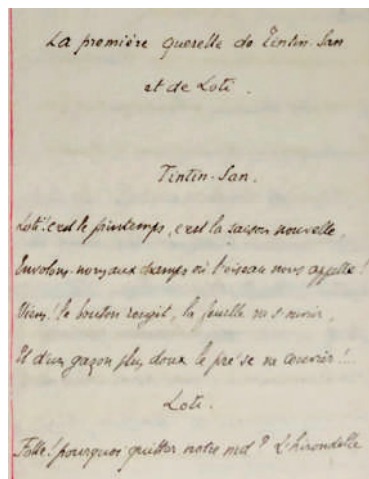 La première querelle de Tintin-San
et de Loti.
Tintin-San.
Loti! c'est le printemps, c'est la saison nouvelle,
Envolons-nous aux champs où l'oiseau nous appelle!
Viens! le bouton rougit, la feuille va s'ouvrir,
Et d'un gazon plus doux le pré se va couvrir!...
Loti.
Folle! pourquoi quitter notre nid? L'hirondelle